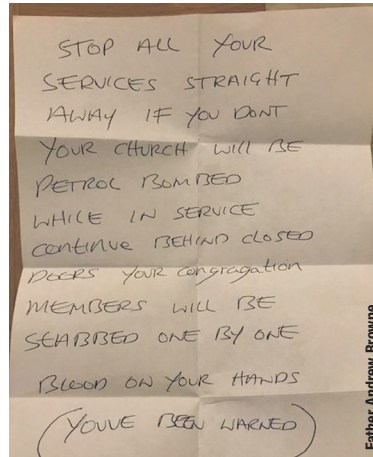 STOP ALL YOUR
SERVICES STRAIGHT
AWAY IF YOU DONT
YOUR CHURCH WILL BE
PETROL BOMBED
WHILE IN SERVICE
CONTINUE BEHIND CLOSED
DOORS YOUR CONGRAGATION
MEMBERS WILL BE
STABBED ONE BY ONE
BLOOD ON YOUR HANDS
(YOUVE BEEN WARNED)
Father Andrew Browne